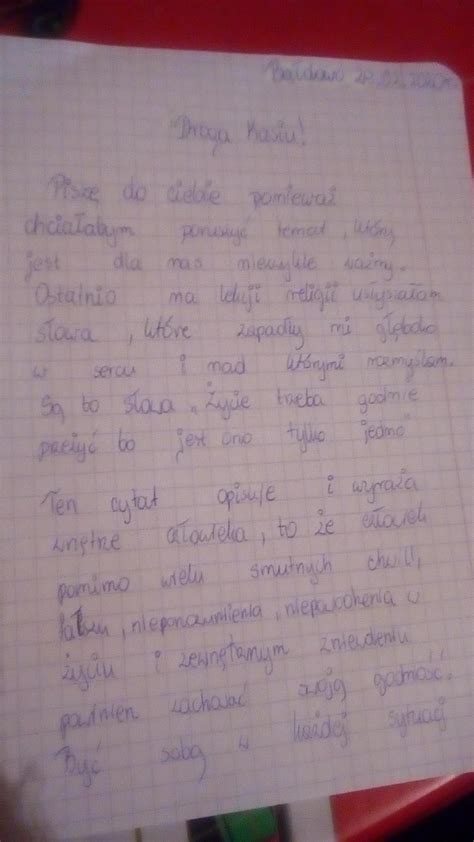 Bałdowo 28.02.2020r
Droga Kasiu!
Piszę do ciebie ponieważ
chciałabym poruszyć temat, który
jest dla nas niezwykle ważny.
Ostatnio na lekcji religii usłyszałam
słowa, które zapadły mi głęboko
w sercu i nad którymi rozmyślam.
Są to słowa „Życie trzeba godnie
przeżyć bo jest ono tylko jedno"
Ten cytat opisuje i wyraża
wnętrze człowieka, to że człowiek
pomimo wielu smutnych chwil,
nieporozumienia, niepowodzenia w
życiu i zewnętrznym
powinien zachować swoją godność.
Być sobą w każdej sytuacji